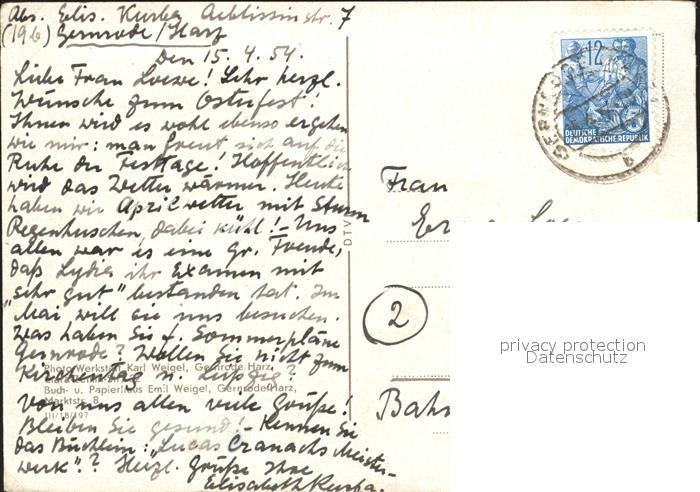 Abs. Elis. Kurba Aeblissinstr. 7
(19b) Gernrode/Harz
Den 15.4.54.
Liebe Frau Loewe! Sehr herzl.
Wünsche zum Osterfest!
Ihnen wird es wohl ebenso ergehen
wie mir: man freut sich auf die
Ruhe der Festtage! Hoffentlich
wird das Wetter wärmer. Heute
haben wir Aprilwetter mit Sturm
Regenhuschen, dabei kühl! – Uns
allen war es eine gr. Freude,
daß Lydia ihr Examen mit
„sehr gut" bestanden hat. Im
Mai will sie uns besuchen.
Was haben Sie f. Sommerpläne
Gernrode? Wollen Sie nicht zum
Kirchentag n. Leipzig?
Von uns allen viele Grüße!
Bleiben Sie gesund! – Kennen Sie
das Büchlein: „Lucas Cranachs Meister-
werk"? Herzl. Grüße Ihre
Elisabeth Kurba.
Photo Werkstatt Karl Weigel, Gernrode/Harz,
Buch- u. Papierhaus Emil Weigel, Gernrode/Harz,
Marktstr. 8
III/18/197
DTV
12
5
DEUTSCHE
DEMOKRATISCHE REPUBLIK
GERNRODE
b
Frau
2
Bahn
privacy protection
Datenschutz